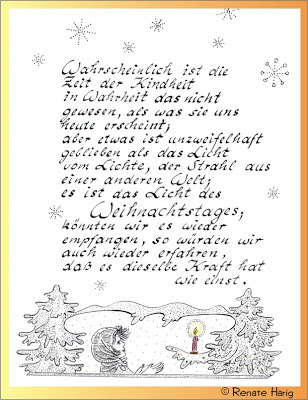 Wahrscheinlich ist die
Zeit der Kindheit
in Wahrheit das nicht
gewesen, als was sie uns
heute erscheint;
aber etwas ist unzweifelhaft
geblieben als das Licht
vom Lichte, der Strahl aus
einer anderen Welt;
es ist das Licht des
Weihnachtstages;
könnten wir es wieder
empfangen, so würden wir
auch wieder erfahren,
daß es dieselbe Kraft hat
wie einst.
© Renate Harig